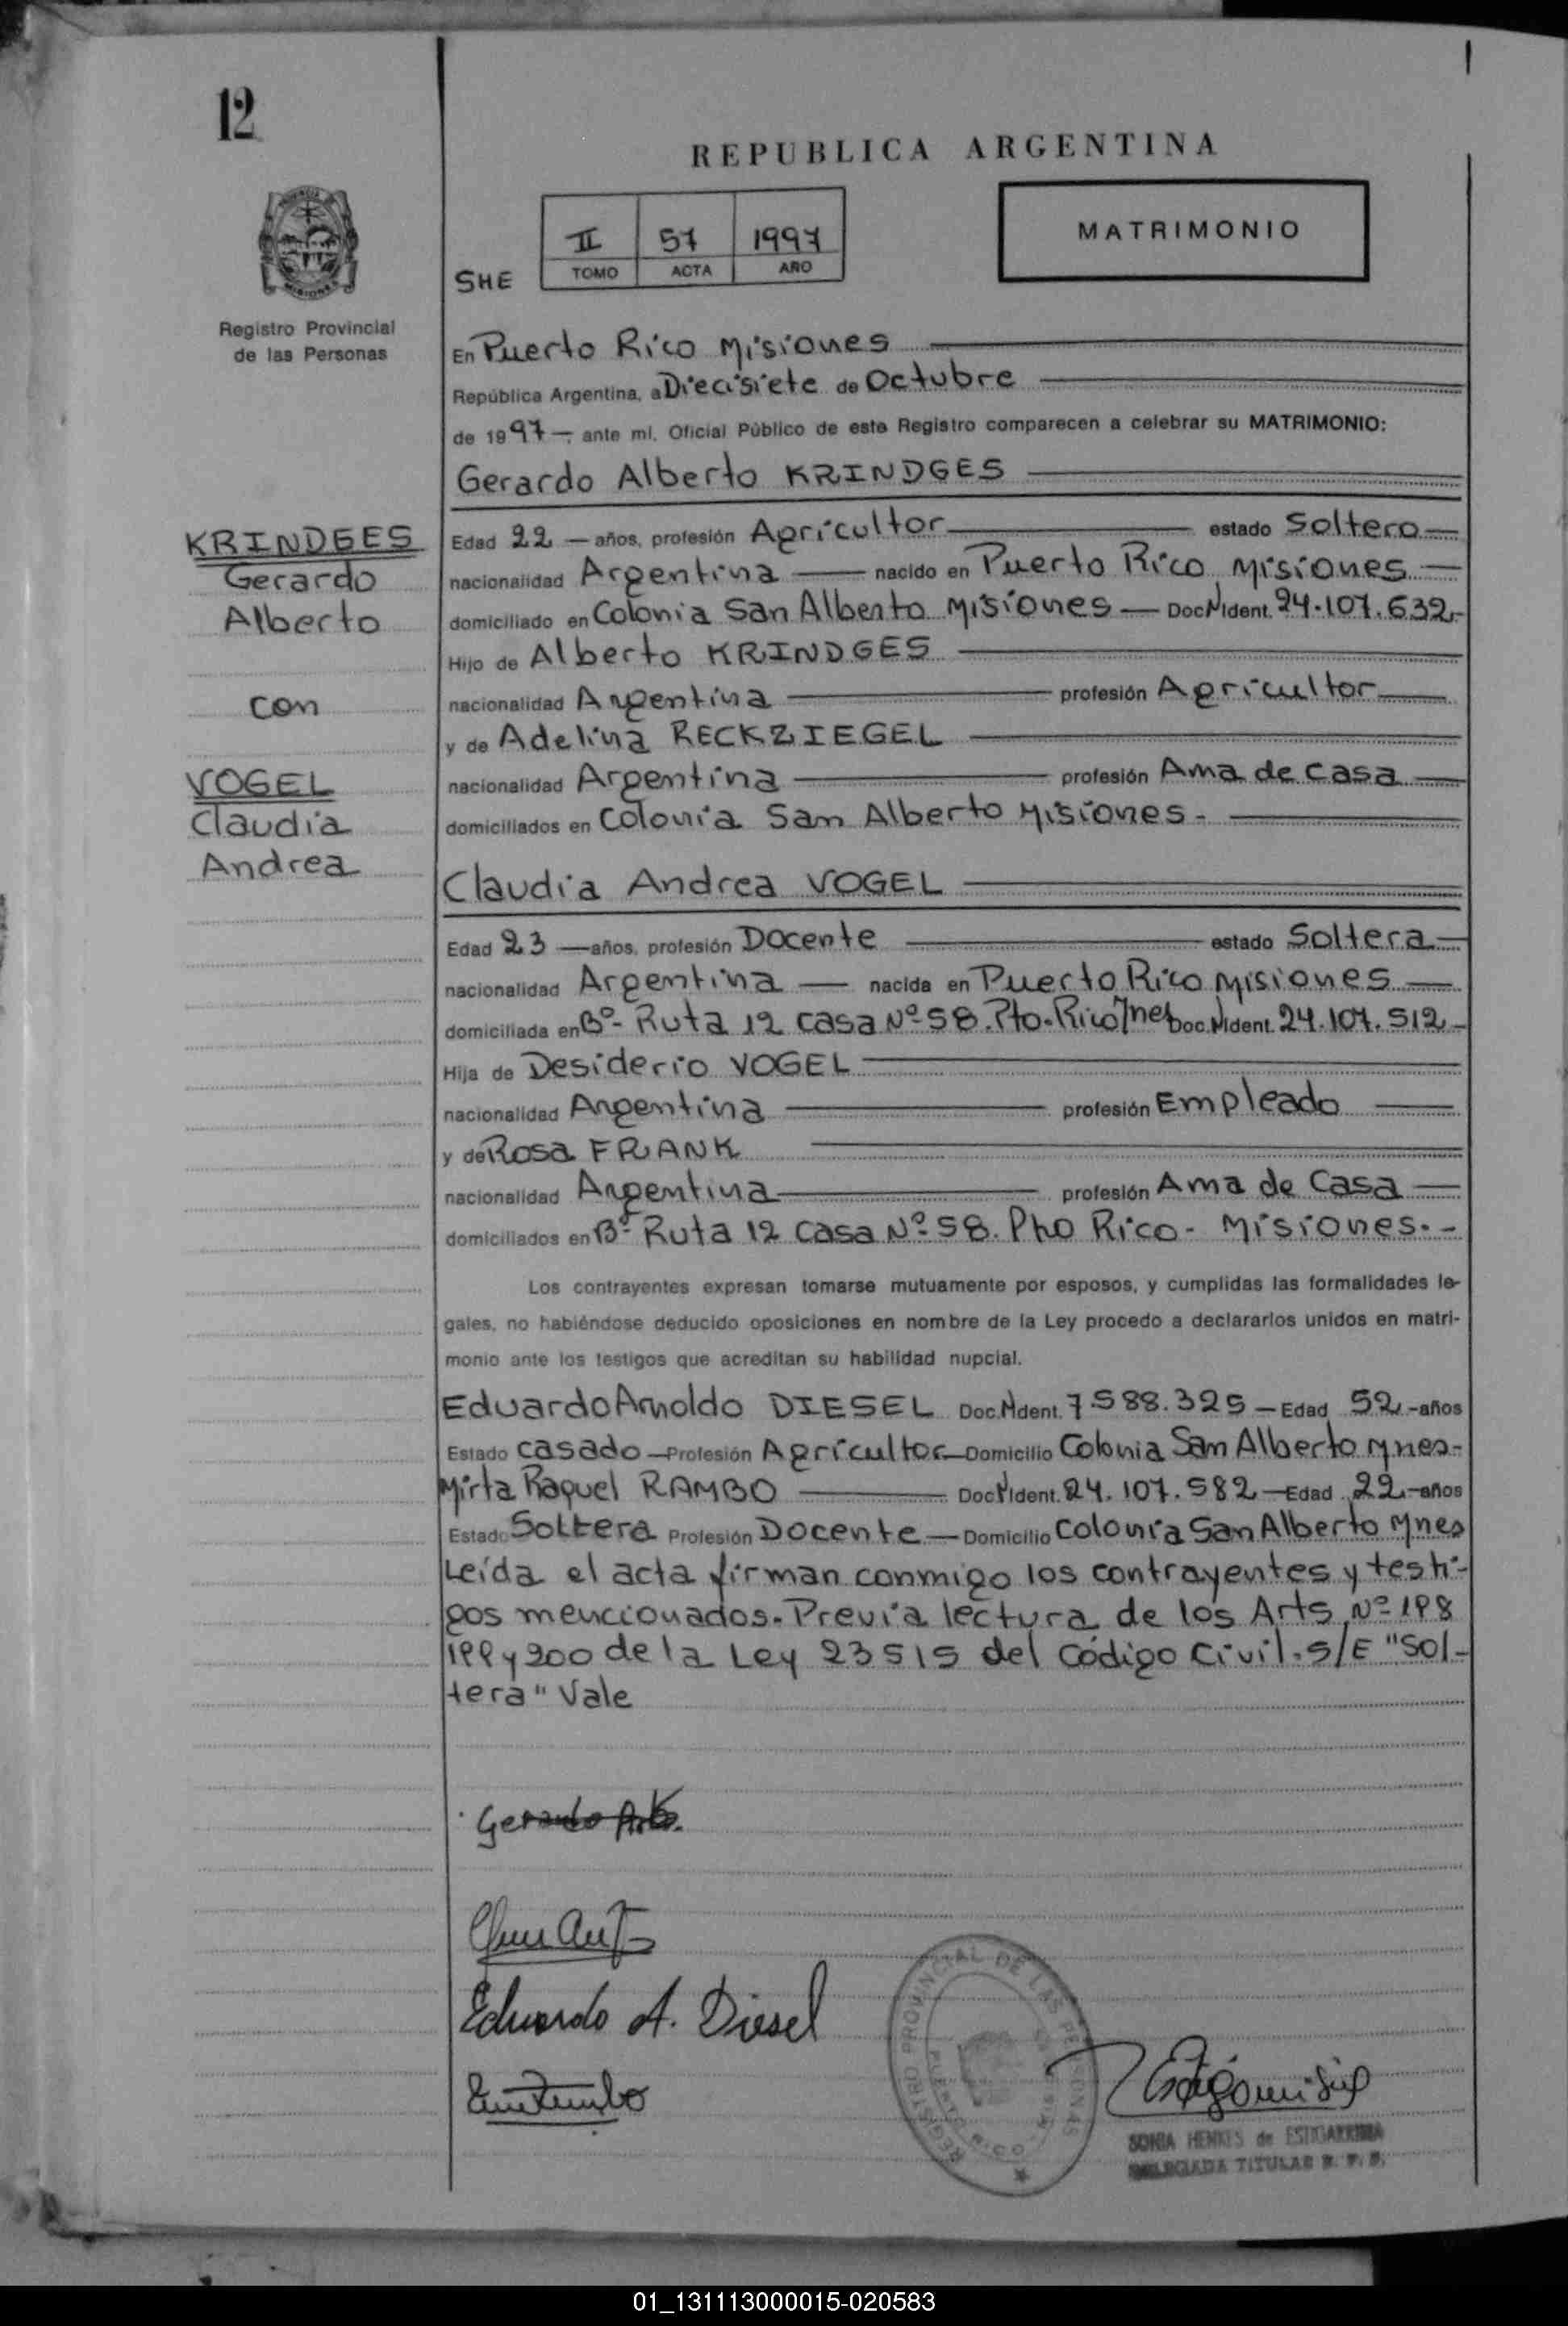 12
REPUBLICA ARGENTINA
PROVINCIA DE
MISIONES
Registro Provincial
de las Personas
II 57 1997
TOMO ACTA AÑO
SHE
MATRIMONIO
En Puerto Rico Misiones
República Argentina, a Diecisiete de Octubre
de 1997 — ante mí, Oficial Público de este Registro comparecen a celebrar su MATRIMONIO:
Gerardo Alberto KRINDGES
KRINDGES
Gerardo
Alberto
con
VOGEL
Claudia
Andrea
Edad 22 — años, profesión Agricultor estado Soltero
nacionalidad Argentina — nacido en Puerto Rico Misiones
domiciliado en Colonia San Alberto Misiones — Doc.N.Ident. 24.107.632.-
Hijo de Alberto KRINDGES
nacionalidad Argentina profesión Agricultor
y de Adelina RECKZIEGEL
nacionalidad Argentina profesión Ama de casa
domiciliados en Colonia San Alberto Misiones -
Claudia Andrea VOGEL
Edad 23 — años, profesión Docente estado Soltera
nacionalidad Argentina — nacida en Puerto Rico Misiones
domiciliada en Bº- Ruta 12 casa Nº 58. Pto. Rico Mnes Doc.N.Ident. 24.107.512 -
Hija de Desiderio VOGEL
nacionalidad Argentina profesión Empleado
y de Rosa FRANK
nacionalidad Argentina profesión Ama de Casa
domiciliados en Bº- Ruta 12 casa Nº 58. Pto Rico - Misiones. -
Los contrayentes expresan tomarse mutuamente por esposos, y cumplidas las formalidades le-
gales, no habiéndose deducido oposiciones en nombre de la Ley procedo a declararlos unidos en matri-
monio ante los testigos que acreditan su habilidad nupcial.
Eduardo Arnoldo DIESEL Doc.N.Ident. 7.588.325 — Edad 52 - años
Estado casado — Profesión Agricultor — Domicilio Colonia San Alberto Mnes -
Mirta Raquel RAMBO Doc.N.Ident. 24.107.582 — Edad 22 - años
Estado Soltera Profesión Docente — Domicilio Colonia San Alberto Mnes
Leída el acta firman conmigo los contrayentes y testi-
gos mencionados. Previa lectura de los Arts Nº 198
199 y 200 de la Ley 23515 del Código Civil. S/E "Sol-
tera" Vale
Gerardo A.K.
Eduardo A. Diesel
REGISTRO PROVINCIAL DE LAS PERSONAS
PUERTO RICO
SONIA HENKES de ESTIGARRIBIA
DELEGADA TITULAR R. P. P.
01_131113000015-020583